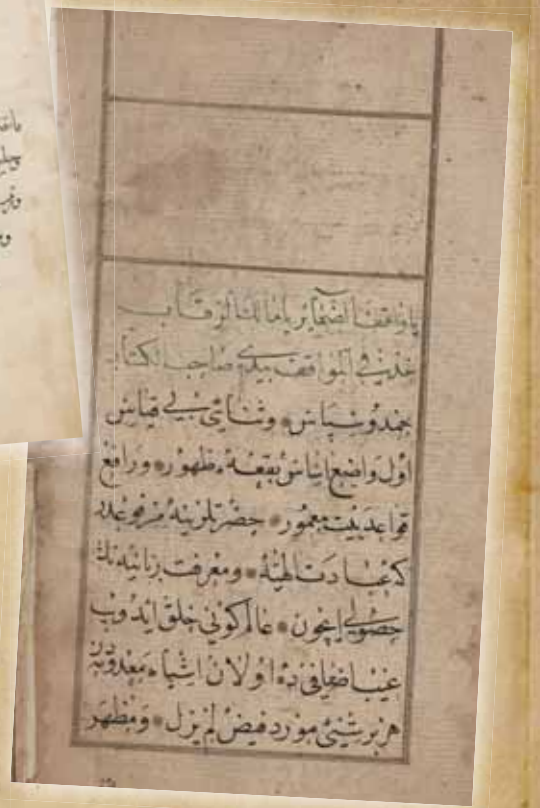 يا واقف الضمائر يا مالك الرقاب
خذ بيدي في المواقف صاحب الكتاب
حمد و سپاس * و ثنای بی قیاس
اول واضع اساس بقعهٔ ظهور * و رافع
قواعد بیت معمور * حضرتلرینه مرفوعدر
که عبادت الهیه * و معرفت ربانیه نك
حصولی ایچون * عالم کونی خلق ایدوب
غیب اضافی ده اولان اشیاء معدودنڭ
هر بر شیئی مورد فیض لم یزل * و مظهر